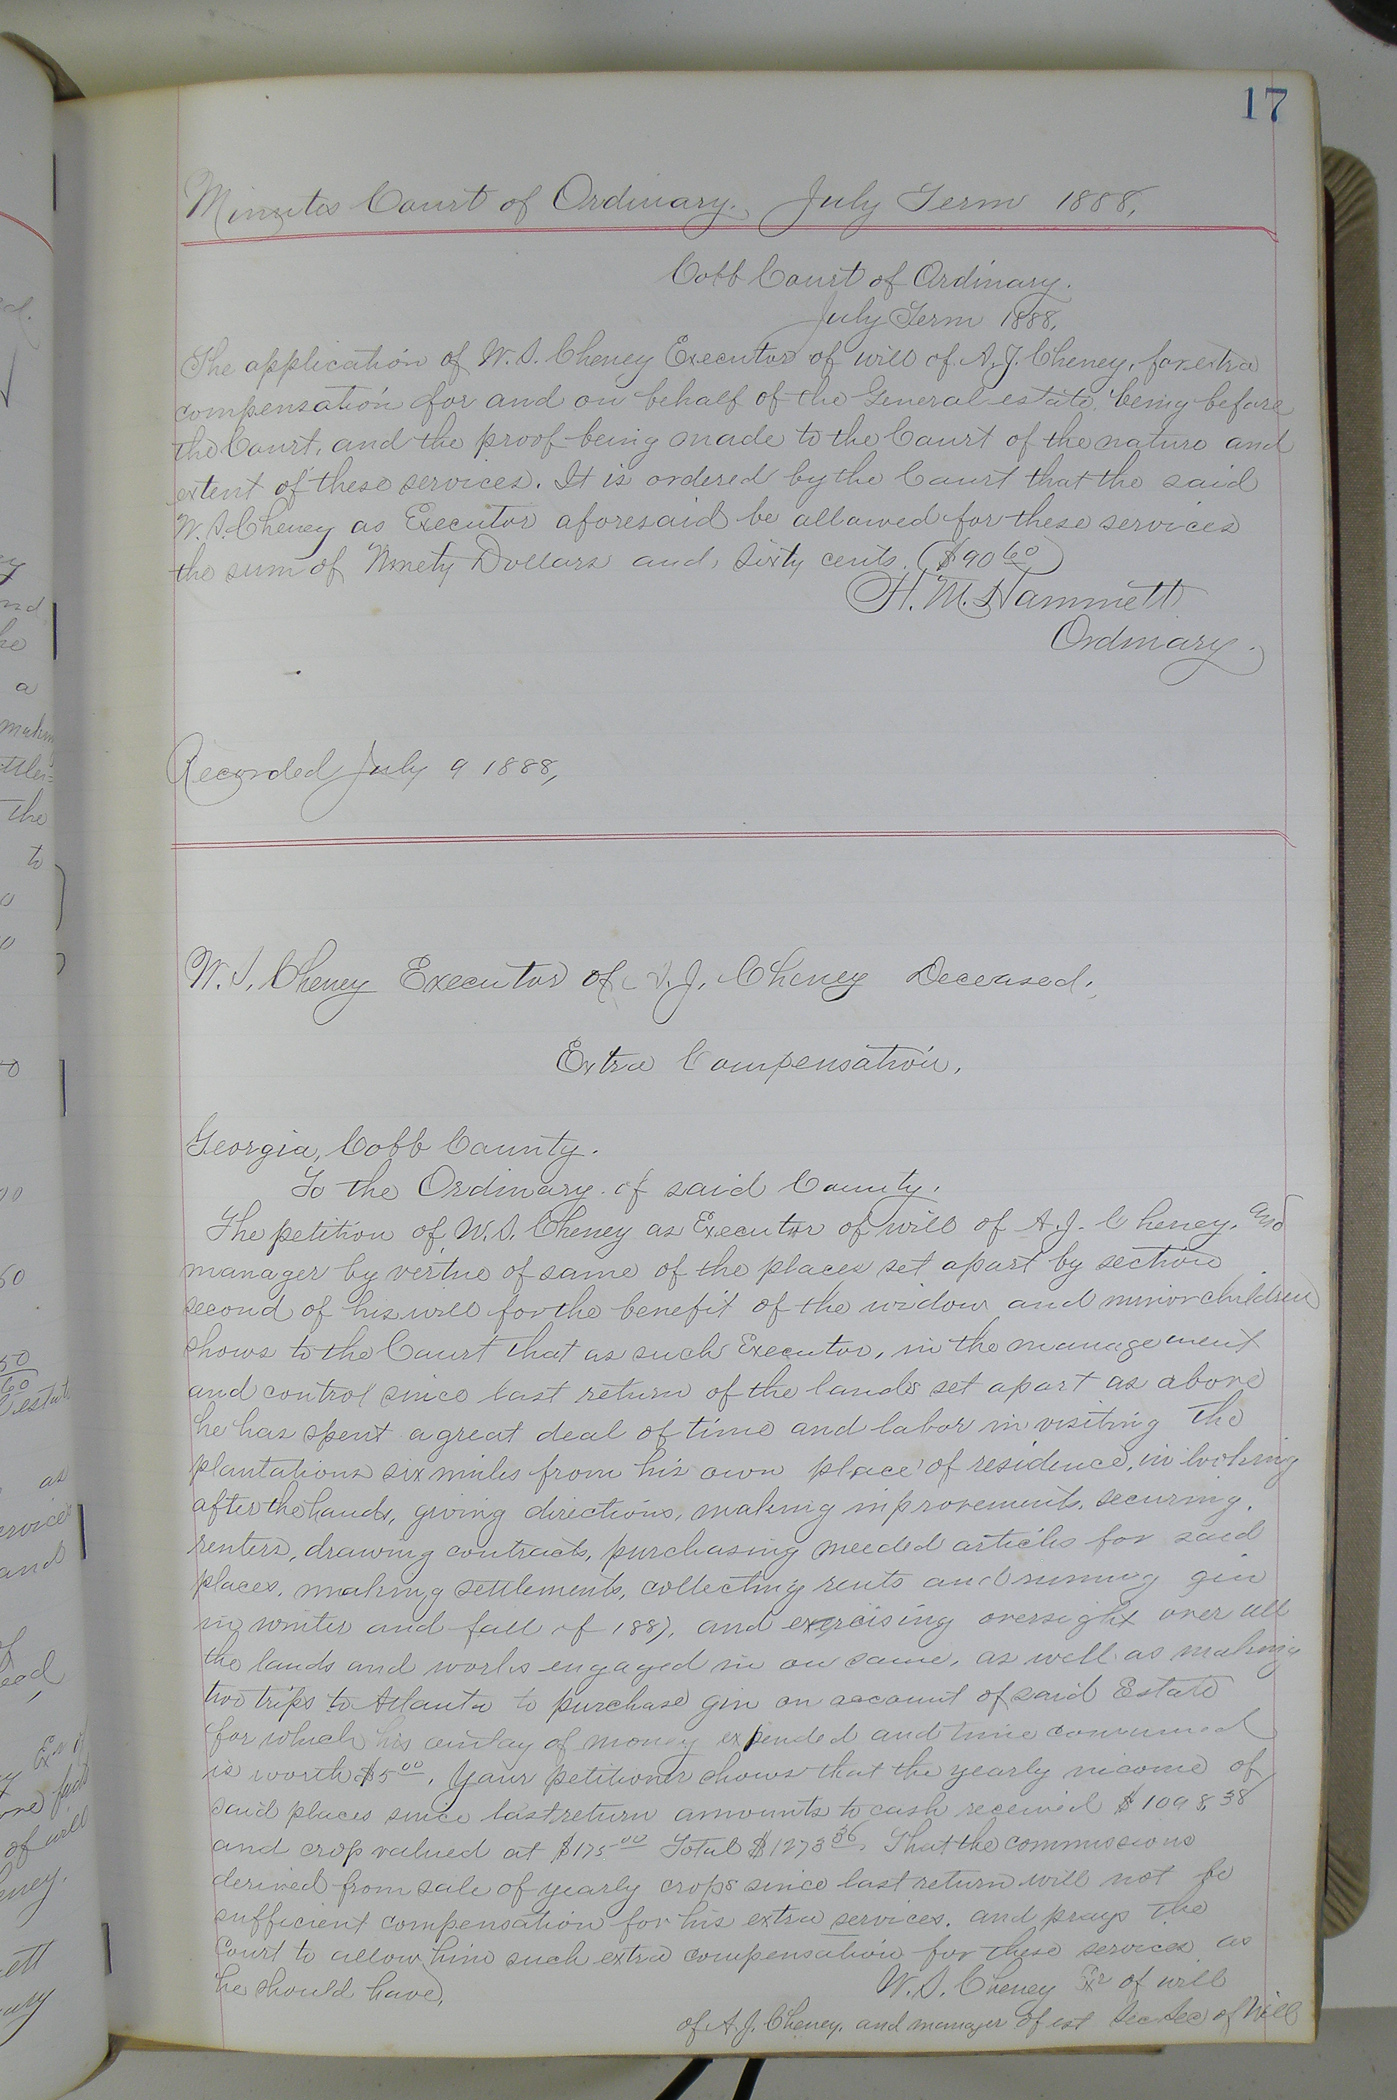 17
Minutes Court of Ordinary. July Term 1888,
Cobb Court of Ordinary.
July Term 1888.
The application of W. S. Cheney Executor of will of A. J. Cheney, for extra
compensation for and on behalf of the General estate, being before
the Court, and the proof being made to the Court of the nature and
extent of these services. It is ordered by the Court that the said
W. S. Cheney as Executor aforesaid be allowed for these services
the sum of Ninety Dollars and Sixty cents. ($90 60)
H. M. Hammett
Ordinary.
Recorded July 9 1888,
W. S. Cheney Executor of A. J. Cheney Deceased.
Extra Compensation.
Georgia, Cobb County.
To the Ordinary of said County.
The petition of W. S. Cheney as Executor of will of A. J. Cheney, and
manager by vertue of same of the places set apart by section
second of his will for the benefit of the widow and minor children
shows to the Court that as such Executor, in the management
and control since last return of the lands set apart as above
he has spent a great deal of time and labor in visiting the
plantations six miles from his own place of residence, in looking
after the hands, giving directions, making improvements, securing
renters, drawing contracts, purchasing needed articles for said
places, making settlements, collecting rents and running gin
in winter and fall of 1887, and exercising oversight over all
the lands and works engaged in on same, as well as making
two trips to Atlanta to purchase gin on account of said Estate
for which his outlay of money expended and time consumed
is worth $5 00. Your petitioner shows that the yearly income of
said places since last return amounts to cash received $1098,38
and crop valued at $175 00 Total $1273 36. That the commissions
derived from sale of yearly crops since last return will not be
sufficient compensation for his extra services, and prays the
Court to allow him such extra compensation for these services as
he should have,
W. S. Cheney Exr of will
of A. J. Cheney, and manager of est Sec of Will